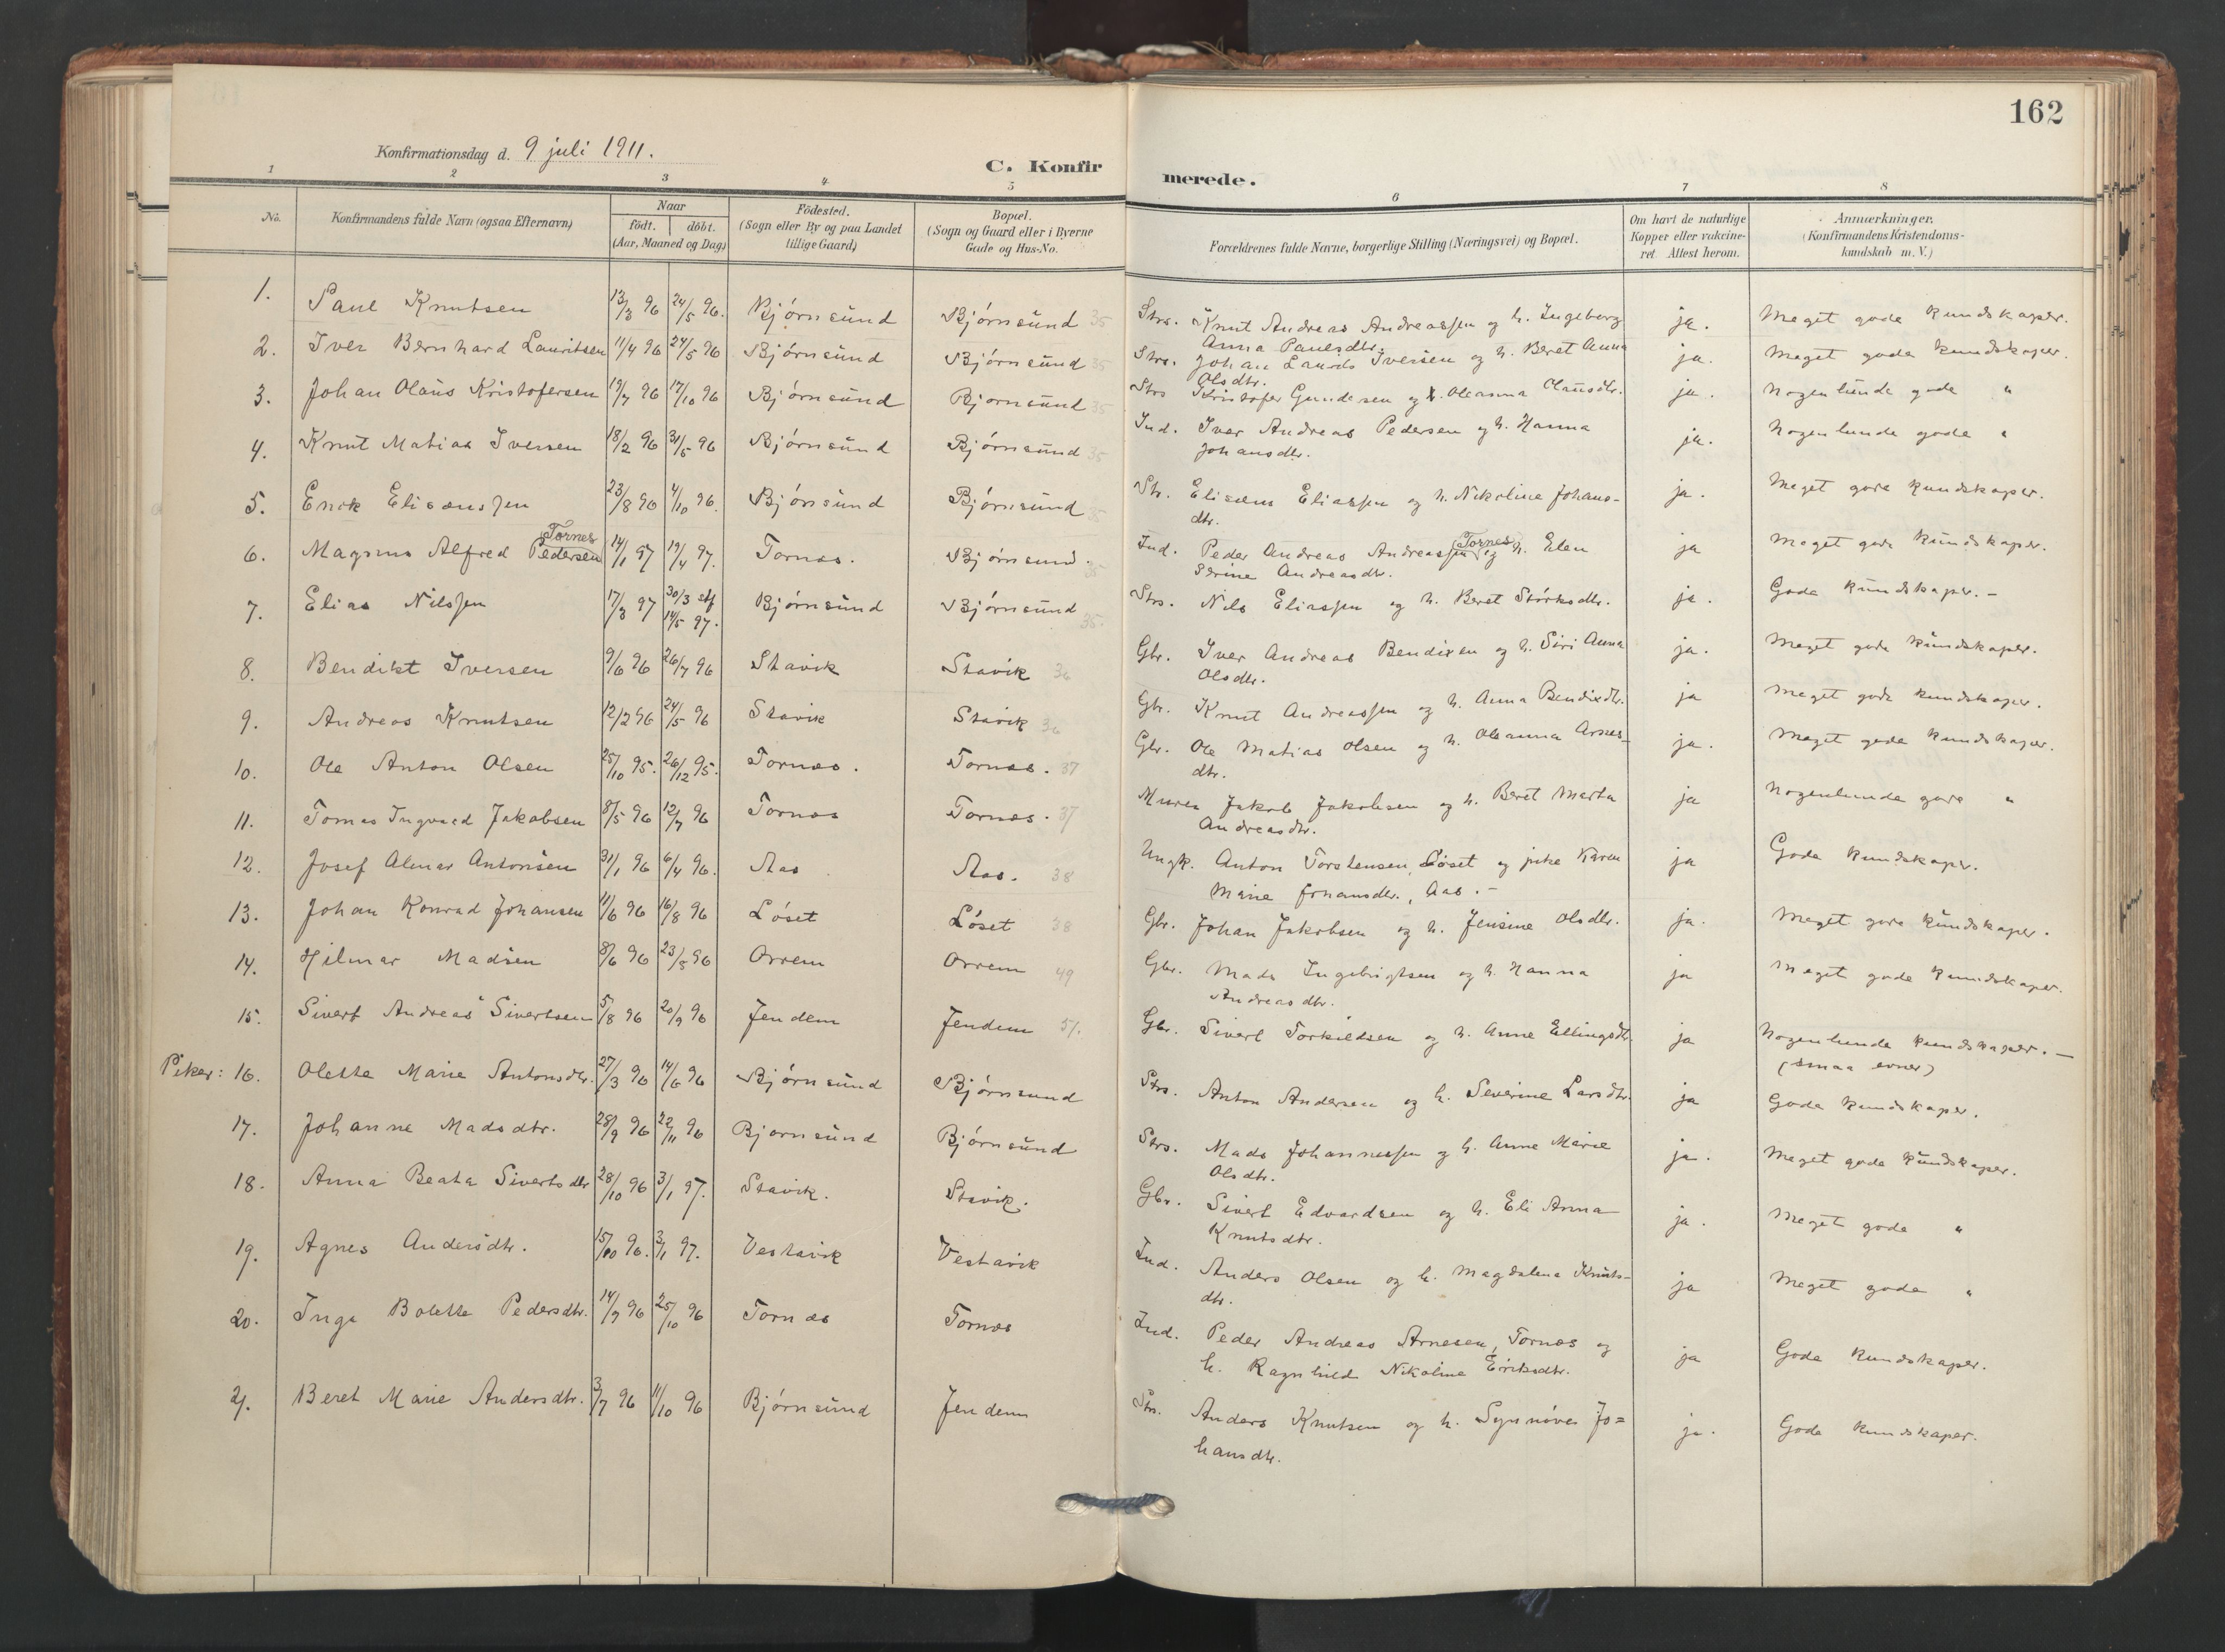 162
Konfirmationsdag d. 9 juli 1911.
C. Konfirmerede.
1 2 3 4 5 6 7 8
No.
Konfirmandens fulde Navn (ogsaa Efternavn)
Naar
födt. döbt.
(Aar, Maaned og Dag)
Födested.
(Sogn eller By og paa Landet
tillige Gaard)
Bopæl.
(Sogn og Gaard eller i Byerne
Gade og Hus-No.
Forældrenes fulde Navne, borgerlige Stilling (Næringsvei) og Bopæl.
Om havt de naturlige
Kopper eller vakcine-
ret Attest herom.
Anmærkninger.
(Konfirmandens Kristendoms-
kundskab m. V.)
1. Paul Knutsen 13/3 96 24/5 96. Bjørnsund Bjørnsund 35 Strs. Knut Andreas Andreassen og h. Ingeborg ja. Meget gode kundskaper.
Anna Paulsdtr.
2. Iver Bernhard Lauritsen 11/4 96 24/5 96 Bjørnsund Bjørnsund 35 Strs. Johan Laurits Iversen og h. Beret Anna ja. Meget gode kundskaper.
Olsdtr.
3. Johan Olaus Kristofersen 19/7 96 17/10 96 Bjørnsund Bjørnsund 35 Strs Kristofer Gundersen og h. Oleanna Olausdtr. ja. Nogenlunde gode "
4. Knut Matias Iversen 18/2 96 31/5 96 Bjørnsund Bjørnsund 35 Ind. Iver Andreas Pedersen og h. Hanna ja. Nogenlunde gode "
Johansdtr.
5. Erik Elisæussen 23/8 96 4/10 96. Bjørnsund Bjørnsund 35 Str. Elisæus Eliassen og h. Nikoline Johans- ja. Meget gode kundskaper.
dtr.
Tornes
6. Magnus Alfred Pedersen 14/1 97 19/4 97. Tornes. Bjørnsund. 35 Ind. Peder Andreas Andreassen Tornes og h. Elen ja Meget gode kundskaper.
Serine Andreasdtr.
7. Elias Nilssen 17/3 97 30/3 stf 14/5 97. Bjørnsund Bjørnsund 35. Strs. Nils Eliassen og h. Beret Størksdtr. ja. Gode kundskaper. -
8. Bendikt Iversen 9/6 96 26/7 96 Stavik Stavik 36 Gbr. Iver Andreas Bendixen og h. Siri Anna ja. Meget gode kundskaper.
Olsdtr.
9. Andreas Knutsen 12/2 96 24/5 96 Stavik Stavik 36 Gbr. Knut Andreassen og h. Anna Bendixdtr. ja Meget gode kundskaper.
10. Ole Anton Olsen 25/10 95. 26/12 95. Tornes. Tornes. 37 Gbr. Ole Matias Olsen og h. Oleanna Arnes- ja. Meget gode kundskaper.
dtr.
11. Tomas Ingvard Jakobsen 8/5 96 12/7 96 Tornes Tornes. 37 Murer Jakob Jakobsen og h. Beret Marta ja Nogenlunde gode "
Andreasdtr.
12. Josef Almar Antonsen 31/1 96 6/4 96. Aas Aas. 38 Ungk. Anton Torstensen, Løset og pike Karen ja Gode kundskaper.
Marie Johansdtr., Aas. -
13. Johan Konrad Johansen 11/6 96 16/8 96 Løset Løset 38 Gbr. Johan Jakobsen og h. Jensine Olsdtr. ja. Meget gode kundskaper.
14. Hilmar Madsen 8/6 96 23/5 96 Orrem Orrem 49 Gbr. Mads Ingebrigtsen og h. Hanna ja Meget gode kundskaper.
Andreasdtr.
15. Sivert Andreas Sivertsen 5/8 96 20/9 96 Jendem Jendem 51. Gbr. Sivert Torkildsen og h. Anne Ellingsdtr. ja Nogenlunde kundskaper. -
(smaa evner)
Piker: 16. Olette Marie Antonsdtr. 27/3 96 14/6 96 Bjørnsund Bjørnsund Strs. Anton Andersen og h. Severine Larsdtr. ja Gode kundskaper.
17. Johanne Madsdtr. 28/9 96 22/11 96 Bjørnsund Bjørnsund Strs. Mads Johannessen og h. Anne Marie ja. Meget gode kundskaper.
Olsdtr.
18. Anna Beata Sivertsdtr 28/10 96 3/1 97. Stavik. Stavik. Gbr. Sivert Edvardsen og h. Eli Anna ja. Meget gode "
Knutsdtr.
19. Agnes Andersdtr. 15/10 96. 3/1 97. Vestavik Vestavik Ind. Anders Olsen og h. Magdalena Knuts- ja Meget gode "
dtr.
20. Inga Bolette Pedersdtr. 14/7 96 25/10 96 Tornes Tornes Ind. Peder Andreas Arnesen, Tornes og ja Gode kundskaper.
h. Ragnhild Nikoline Eriksdtr.
21. Beret Marie Andersdtr. 3/7 96 11/10 96 Bjørnsund Jendem Strs. Anders Knutsen og h. Synnøve Jo= ja. Gode kundskaper.
hansdtr.